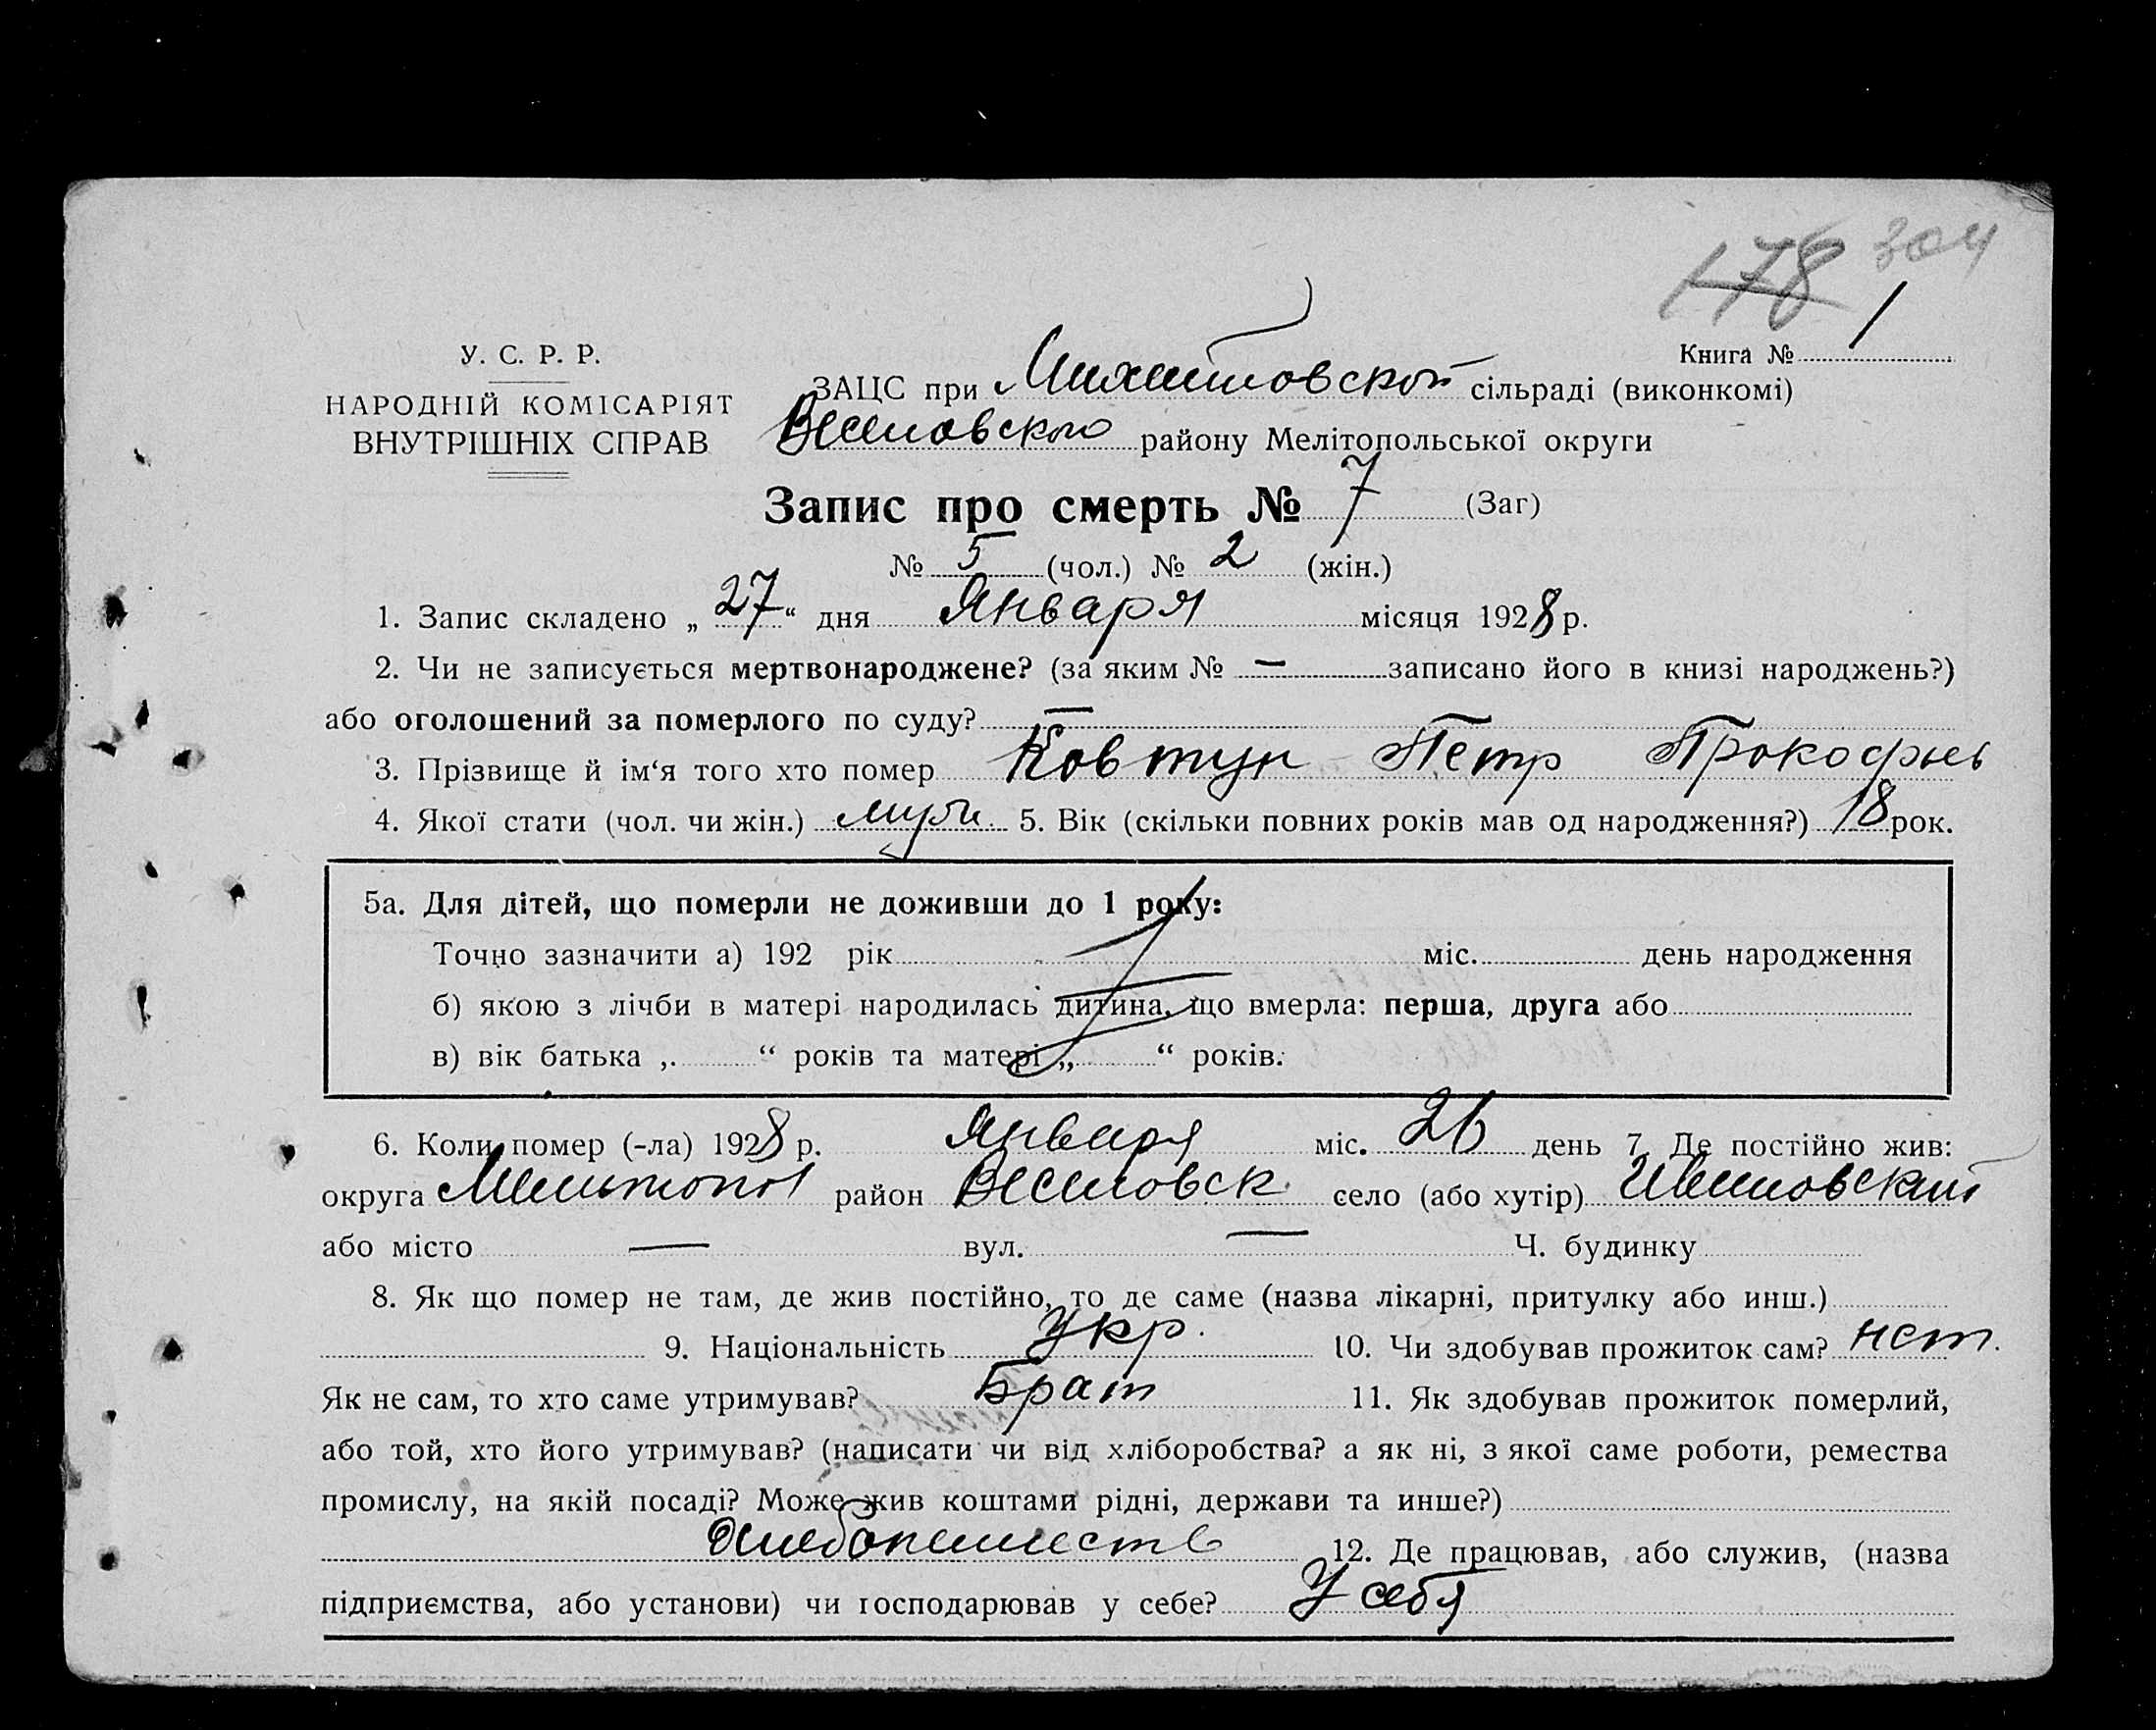 178 304
У. С. Р. Р.
НАРОДНІЙ КОМІСАРІЯТ
ВНУТРІШНІХ СПРАВ
Книга № 1
ЗАЦС при Михайловской сільраді (виконкомі)
Веселовского району Мелітопольської округи
Запис про смерть № 7 (Заг)
№ 5 (чол.) № 2 (жін.)
1. Запис складено „ 27 “ дня Января місяця 1928 р.
2. Чи не записується мертвонароджене? (за яким № — записано його в книзі народжень?)
або оголошений за померлого по суду? —
3. Прізвище й ім‘я того хто помер Ковтун Петр Прокофьев
4. Якої стати (чол. чи жін.) муж. 5. Вік (скільки повних років мав од народження?) 18 рок.
5а. Для дітей, що померли не доживши до 1 року:
Точно зазначити а) 192 рік міс. день народження
б) якою з лічби в матері народилась дитина, що вмерла: перша, друга або
в) вік батька „ “ років та матері „ “ років.
6. Коли помер (-ла) 1928 р. Января міс. 26 день 7. Де постійно жив:
округа Мелитопол район Веселовск село (або хутір)
або місто — вул. — Ч. будинку
8. Як що помер не там, де жив постійно, то де саме (назва лікарні, притулку або инш.)
9. Національність Укр. 10. Чи здобував прожиток сам? нет.
Як не сам, то хто саме утримував? Брат 11. Як здобував прожиток померлий,
або той, хто його утримував? (написати чи від хліборобства? а як ні, з якої саме роботи, ремества
промислу, на якій посаді? Може жив коштами рідні, держави та инше?)
12. Де працював, або служив, (назва
підприємства, або установи) чи господарював у себе? У себя